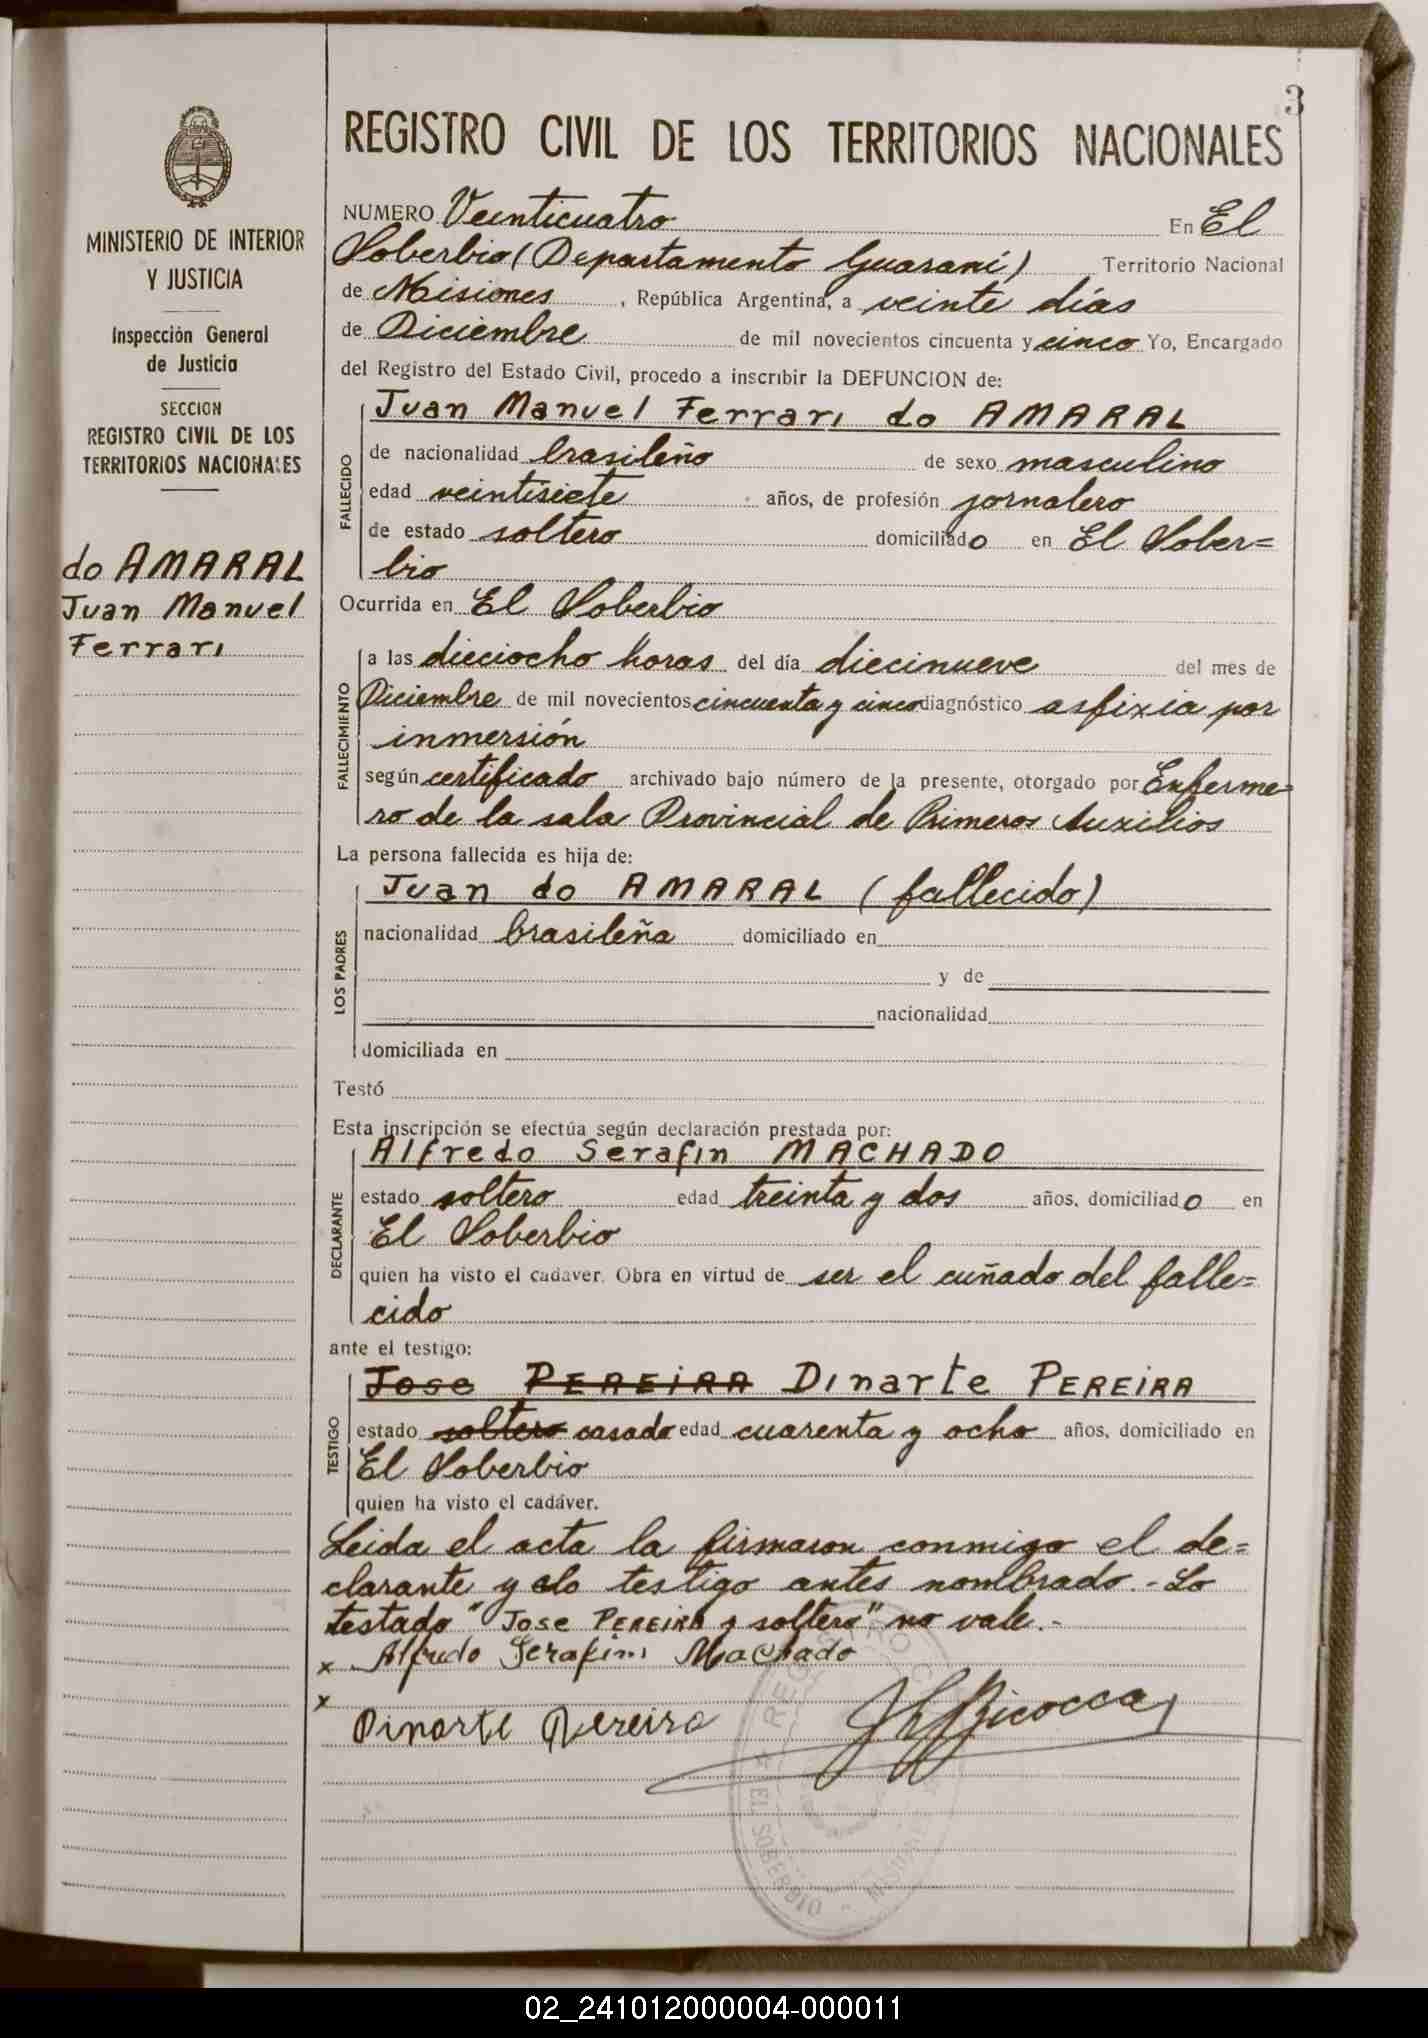 3
REGISTRO CIVIL DE LOS TERRITORIOS NACIONALES
MINISTERIO DE INTERIOR
Y JUSTICIA
Inspección General
de Justicia
SECCION
REGISTRO CIVIL DE LOS
TERRITORIOS NACIONALES
do AMARAL
Juan Manuel
Ferrari
NUMERO Veinticuatro En El
Soberbio (Departamento Guaraní) Territorio Nacional
de Misiones, República Argentina, a veinte días
de Diciembre de mil novecientos cincuenta y cinco Yo, Encargado
del Registro del Estado Civil, procedo a inscribir la DEFUNCION de:
FALLECIDO
Juan Manuel Ferrari do AMARAL
de nacionalidad brasileño de sexo masculino
edad veintisiete años, de profesión jornalero
de estado soltero domiciliado en El Sober=
bio
Ocurrida en El Soberbio
FALLECIMIENTO
a las dieciocho horas del día diecinueve del mes de
Diciembre de mil novecientos cincuenta y cinco diagnóstico asfixia por
inmersión
según certificado archivado bajo número de la presente, otorgado por Enferme=
ro de la sala Provincial de Primeros Auxilios
La persona fallecida es hija de:
LOS PADRES
Juan do AMARAL (fallecido)
nacionalidad brasileña domiciliado en
y de
nacionalidad
domiciliada en
Testó
Esta inscripción se efectúa según declaración prestada por:
DECLARANTE
Alfredo Serafin MACHADO
estado soltero edad treinta y dos años, domiciliado en
El Soberbio
quien ha visto el cadaver. Obra en virtud de ser el cuñado del falle=
cido
ante el testigo:
TESTIGO
Jose PEREIRA Dinarte PEREIRA
estado soltero casado edad cuarenta y ocho años, domiciliado en
El Soberbio
quien ha visto el cadáver.
Leida el acta la firmaron conmigo el de=
clarante y elo testigo antes nombrado.- Lo
testado "Jose PEREIRA y soltero" no vale.-
x Alfredo Serafini Machado
x
Dinarte Pereira
Bicocca
EL SOBERBIO
02_241012000004-000011